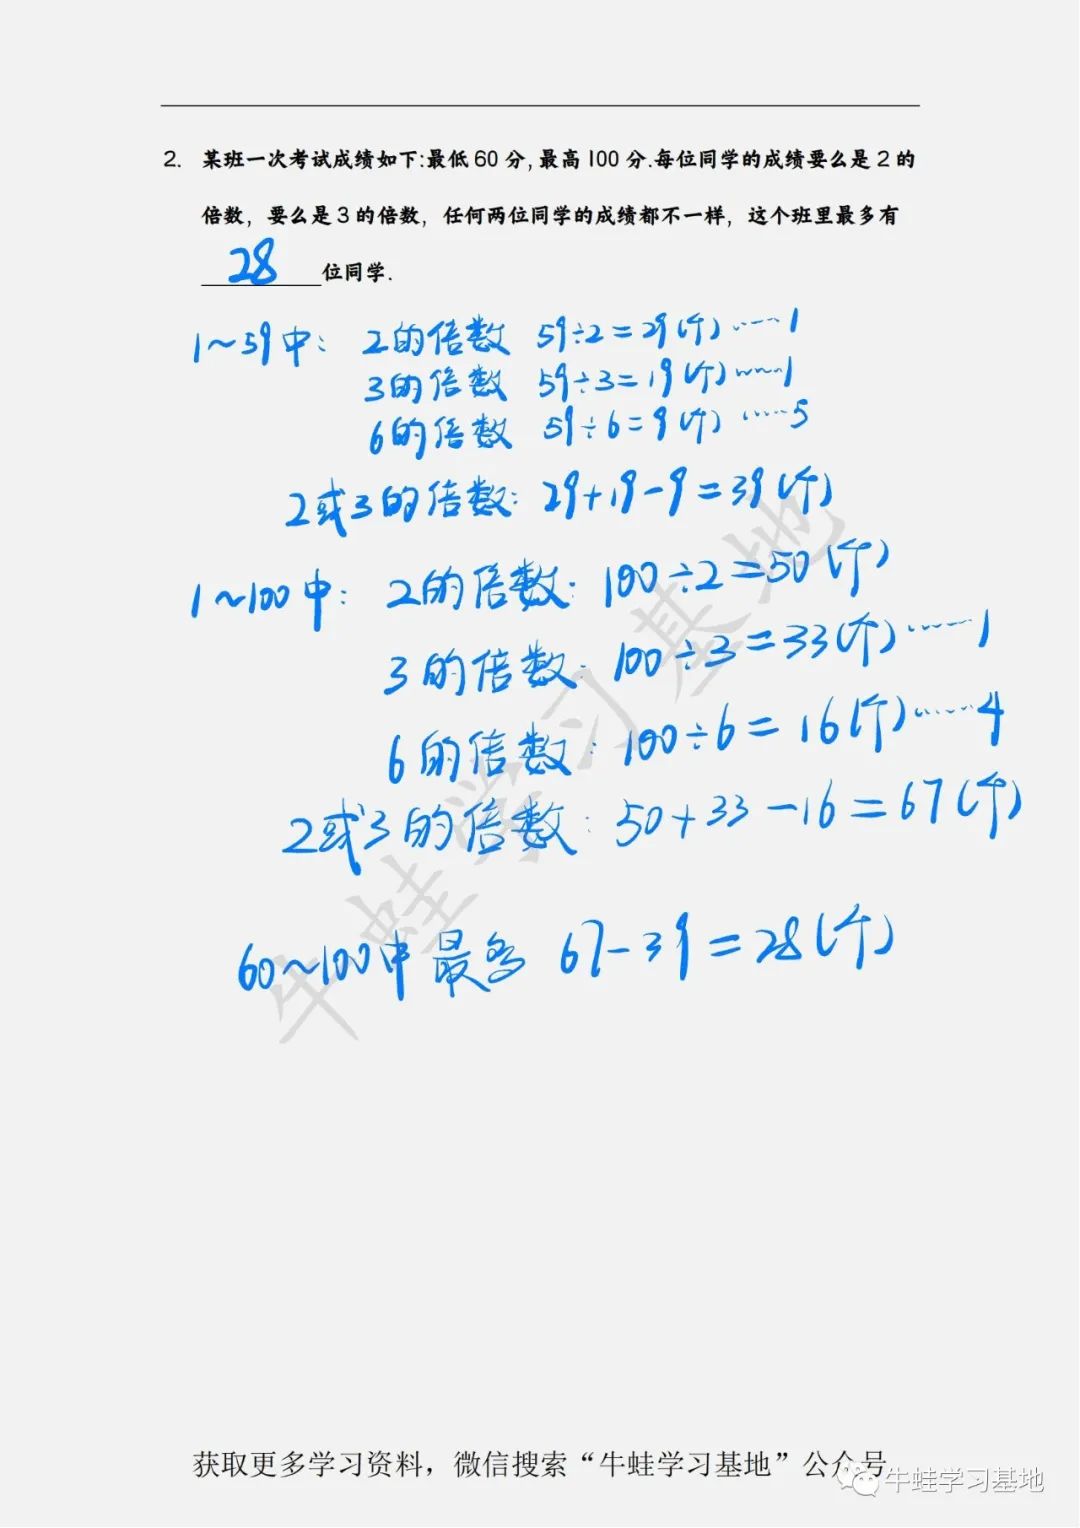 2. 某班一次考试成绩如下:最低60分,最高100分.每位同学的成绩要么是2的
倍数，要么是3的倍数，任何两位同学的成绩都不一样，这个班里最多有
28位同学.
1~59中: 2的倍数 59÷2=29(个)……1
3的倍数 59÷3=19(个)……1
6的倍数 59÷6=9(个)……5
2或3的倍数: 29+19-9=39(个)
1~100中: 2的倍数: 100÷2=50(个)
3的倍数: 100÷3=33(个)……1
6的倍数: 100÷6=16(个)……4
2或3的倍数: 50+33-16=67(个)
60~100中最多 67-39=28(个)
牛蛙学习基地
获取更多学习资料，微信搜索“牛蛙学习基地”公众号
牛蛙学习基地